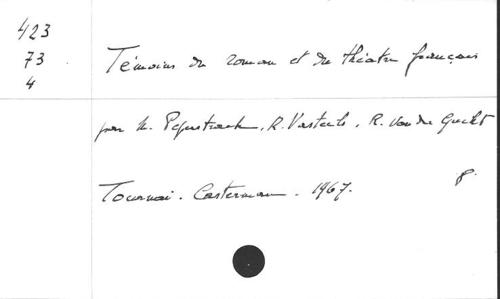 423
73
4
Témoins du roman et du théâtre français
par M. R. Vastels, R. Van de Gucht
Tournai. Casterman. 1967.
8°